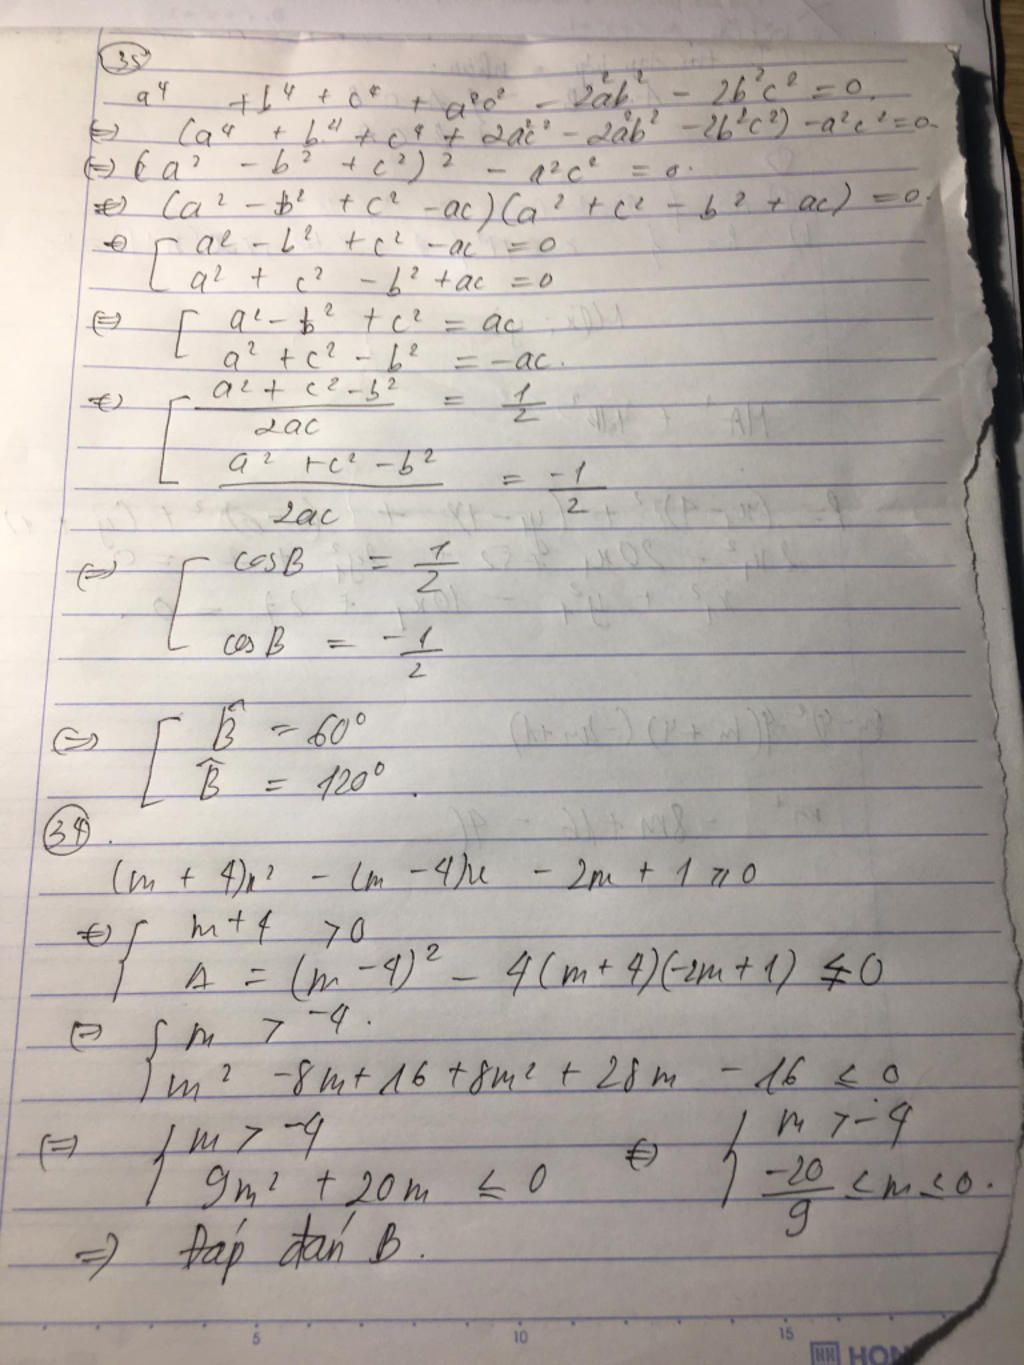 35
a⁴ + b⁴ + c⁴ + a²c² - 2a²b² - 2b²c² = 0.
⇔ (a⁴ + b⁴ + c⁴ + 2a²c² - 2a²b² - 2b²c²) - a²c² = 0.
⇔ (a² - b² + c²)² - a²c² = 0.
⇔ (a² - b² + c² - ac)(a² + c² - b² + ac) = 0.
⇔ [ a² - b² + c² - ac = 0
a² + c² - b² + ac = 0
⇔ [ a² - b² + c² = ac
a² + c² - b² = -ac.
⇔ [ (a² + c² - b²)/2ac = 1/2
(a² + c² - b²)/2ac = -1/2
⇔ [ cosB = 1/2
cosB = -1/2
⇔ [ B̂ = 60°
B̂ = 120°.
34.
(m + 4)x² - (m - 4)x - 2m + 1 ≥ 0
⇔ { m + 4 > 0
Δ = (m - 4)² - 4(m + 4)(-2m + 1) ≤ 0
⇔ { m > -4.
m² - 8m + 16 + 8m² + 28m - 16 ≤ 0
⇔ { m > -4 ⇔ { m > -4
9m² + 20m ≤ 0 -20/9 ≤ m ≤ 0.
⇒ Đáp đán B.
5 10 15
HH HON